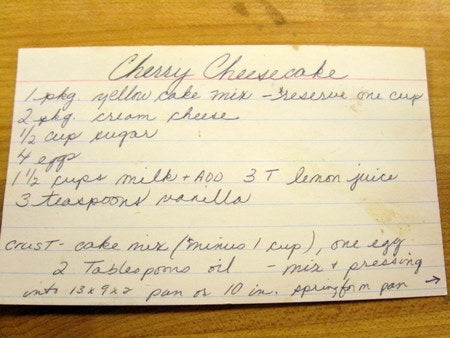 Cherry Cheesecake
1 pkg. yellow cake mix - reserve one cup
2 pkg. cream cheese
1/2 cup sugar
4 eggs
1 1/2 cups milk + ADD 3 T lemon juice
3 teaspoons vanilla
CRUST - cake mix (minus 1 cup), one egg
2 Tablespoons oil - mix + pressing
into 13x9x2 pan or 10 in. springform pan →